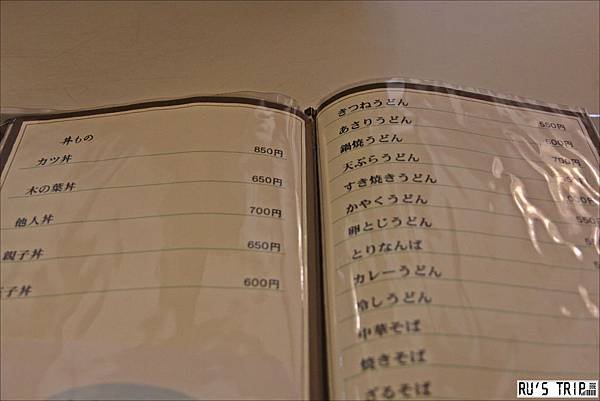 丼もの
カツ丼 850円
木の葉丼 650円
他人丼 700円
親子丼 650円
子丼 600円
きつねうどん
あさりうどん 550円
鍋焼うどん 600円
天ぷらうどん 700円
すき焼きうどん
かやくうどん
卵とじうどん 550円
とりなんば
カレーうどん
冷しうどん
中華そば
焼きそば
ざるそば
RU'S TRIP